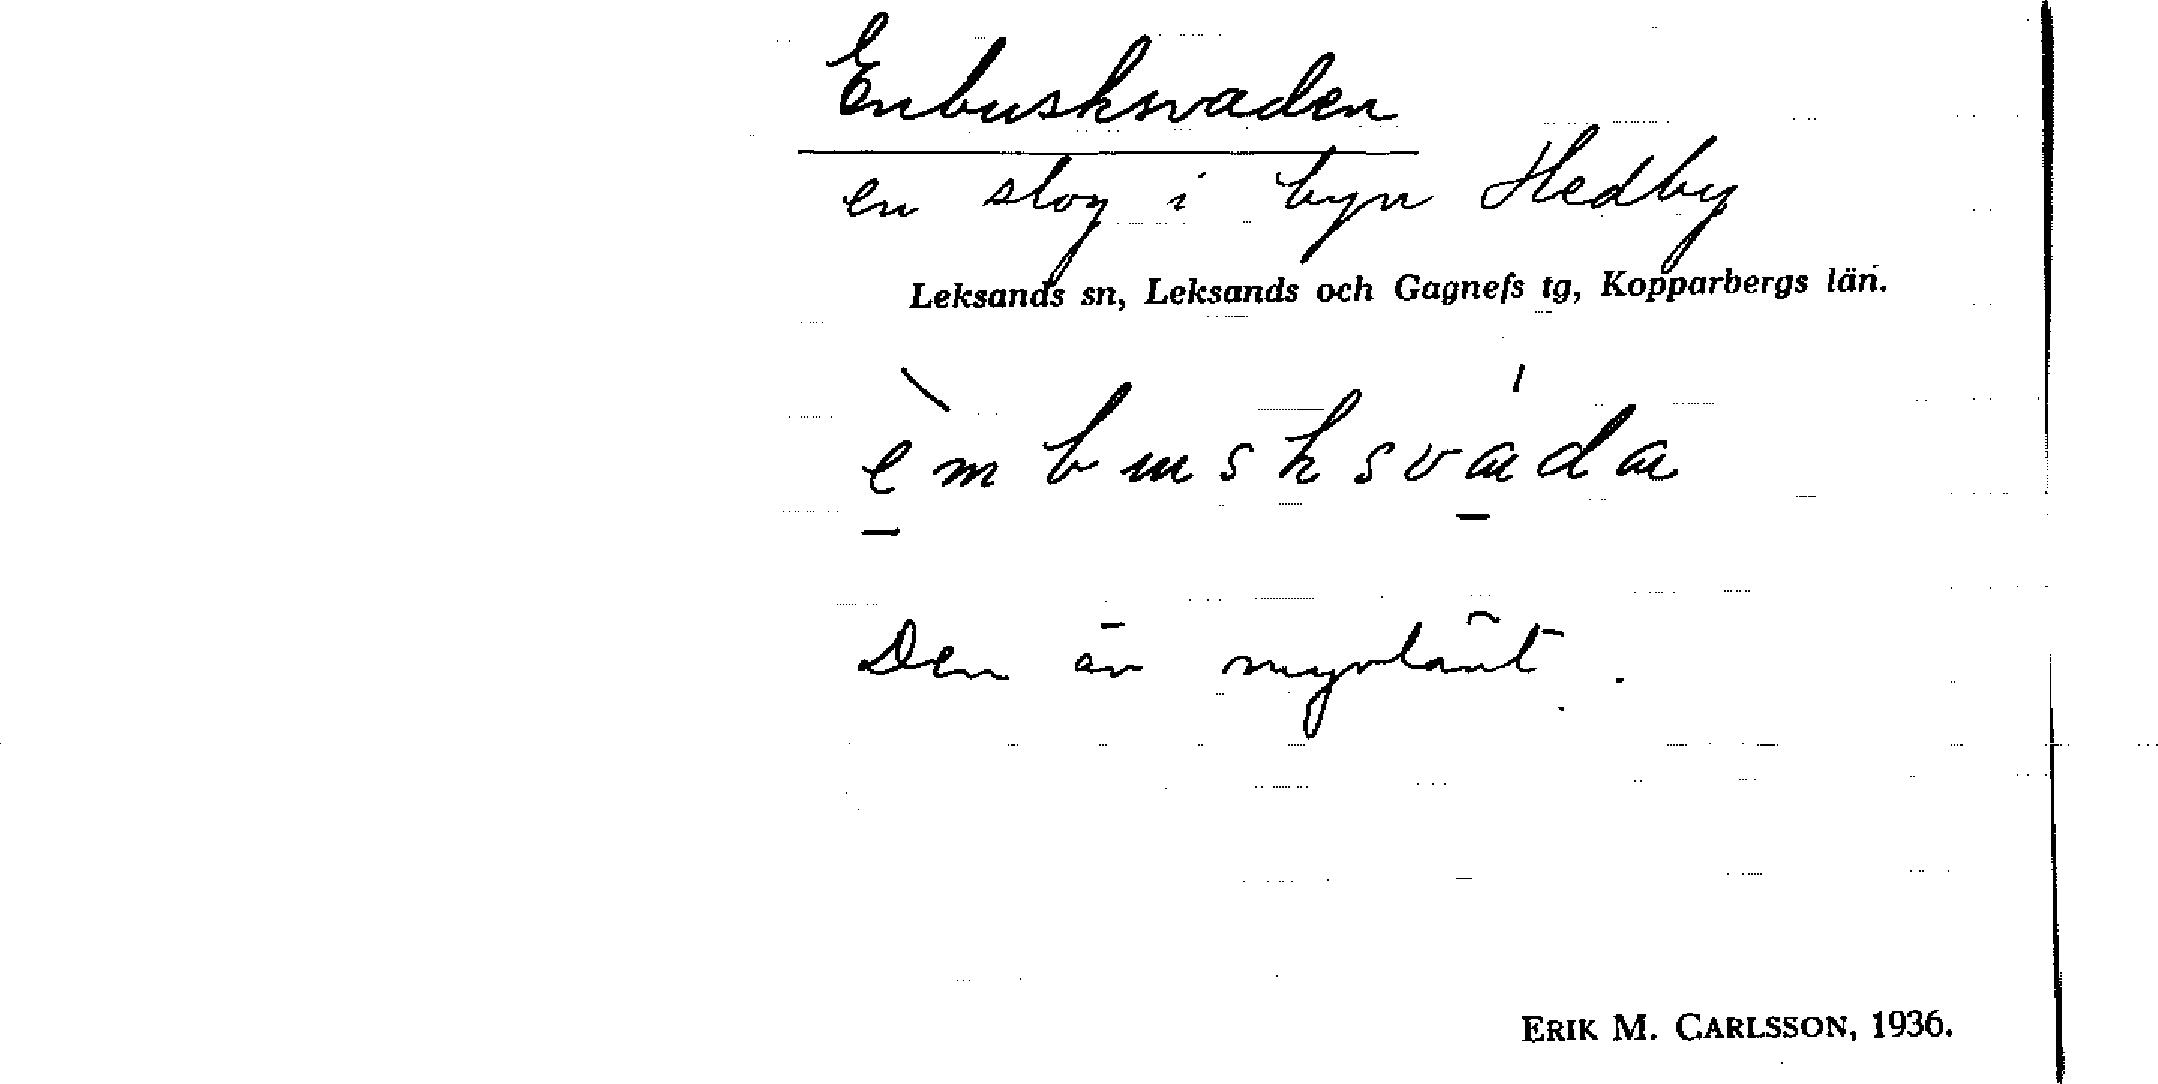 Enbusksvaden
en slog i byn Hedby
Leksands sn, Leksands och Gagnefs tg, Kopparbergs län.
èmbusksváda
Den är myrlänt.
ERIK M. CARLSSON, 1936.